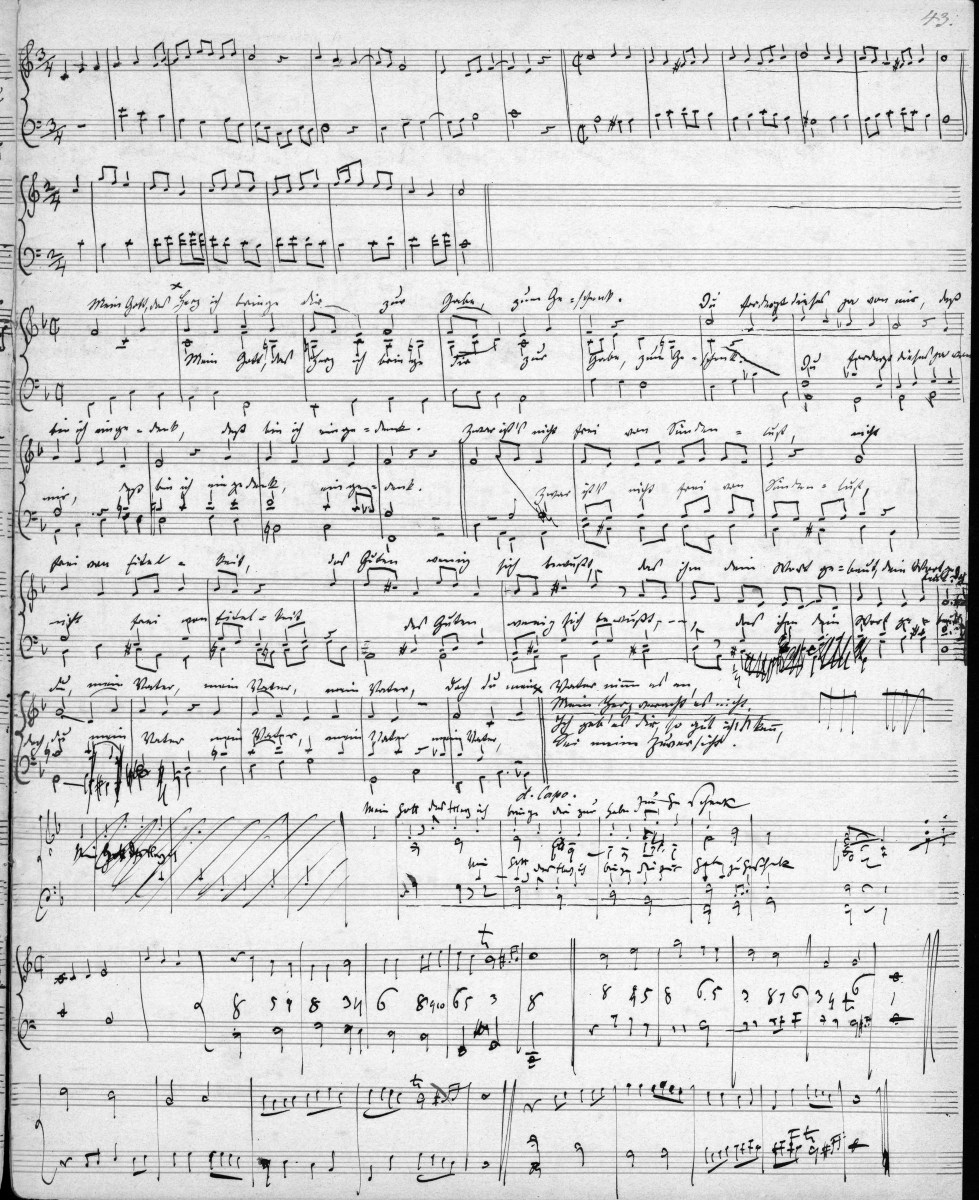 43.
Mein Gott, das Herz ich bringe dir zur Gabe, zum Ge-schenk. Du forderst dieses ja von mir, deß
Mein Gott, das Herz ich bringe dir zur Gabe, zum Ge-schenk. Du forderst dieses ja von
bin ich einge-denk, deß bin ich einge-denk. Zwar ist's nicht frei von Sünden-lust, nicht
mir, deß bin ich eingedenk, einge-denk. Zwar ist's nicht frei von Sünden-lust,
frei von Eitel-keit, des Guten wenig sich bewußt, das ihm dein Wort ge-beut, dein Wort
nicht frei von Eitel-keit des Guten wenig sich bewußt, das ihm dein Wort
du, mein Vater, mein Vater, mein Vater, doch du mein Vater nimm es an,
doch du mein Vater mein Vater, mein Vater mein Vater,
Mein Herz veracht es nicht
Ich geb's dir, so gut ich's kann,
Sei meine Zuversicht.
d. Capo.
Mein Gott das Herz ich bringe dir zur Gabe zum Ge schenk
Mein Gott das Herz
Mein Gott das Herz ich bringe dir zur Gabe zum Geschenk
8 8 6 6 5 3 8 8 8 6 5 8 7 6 6